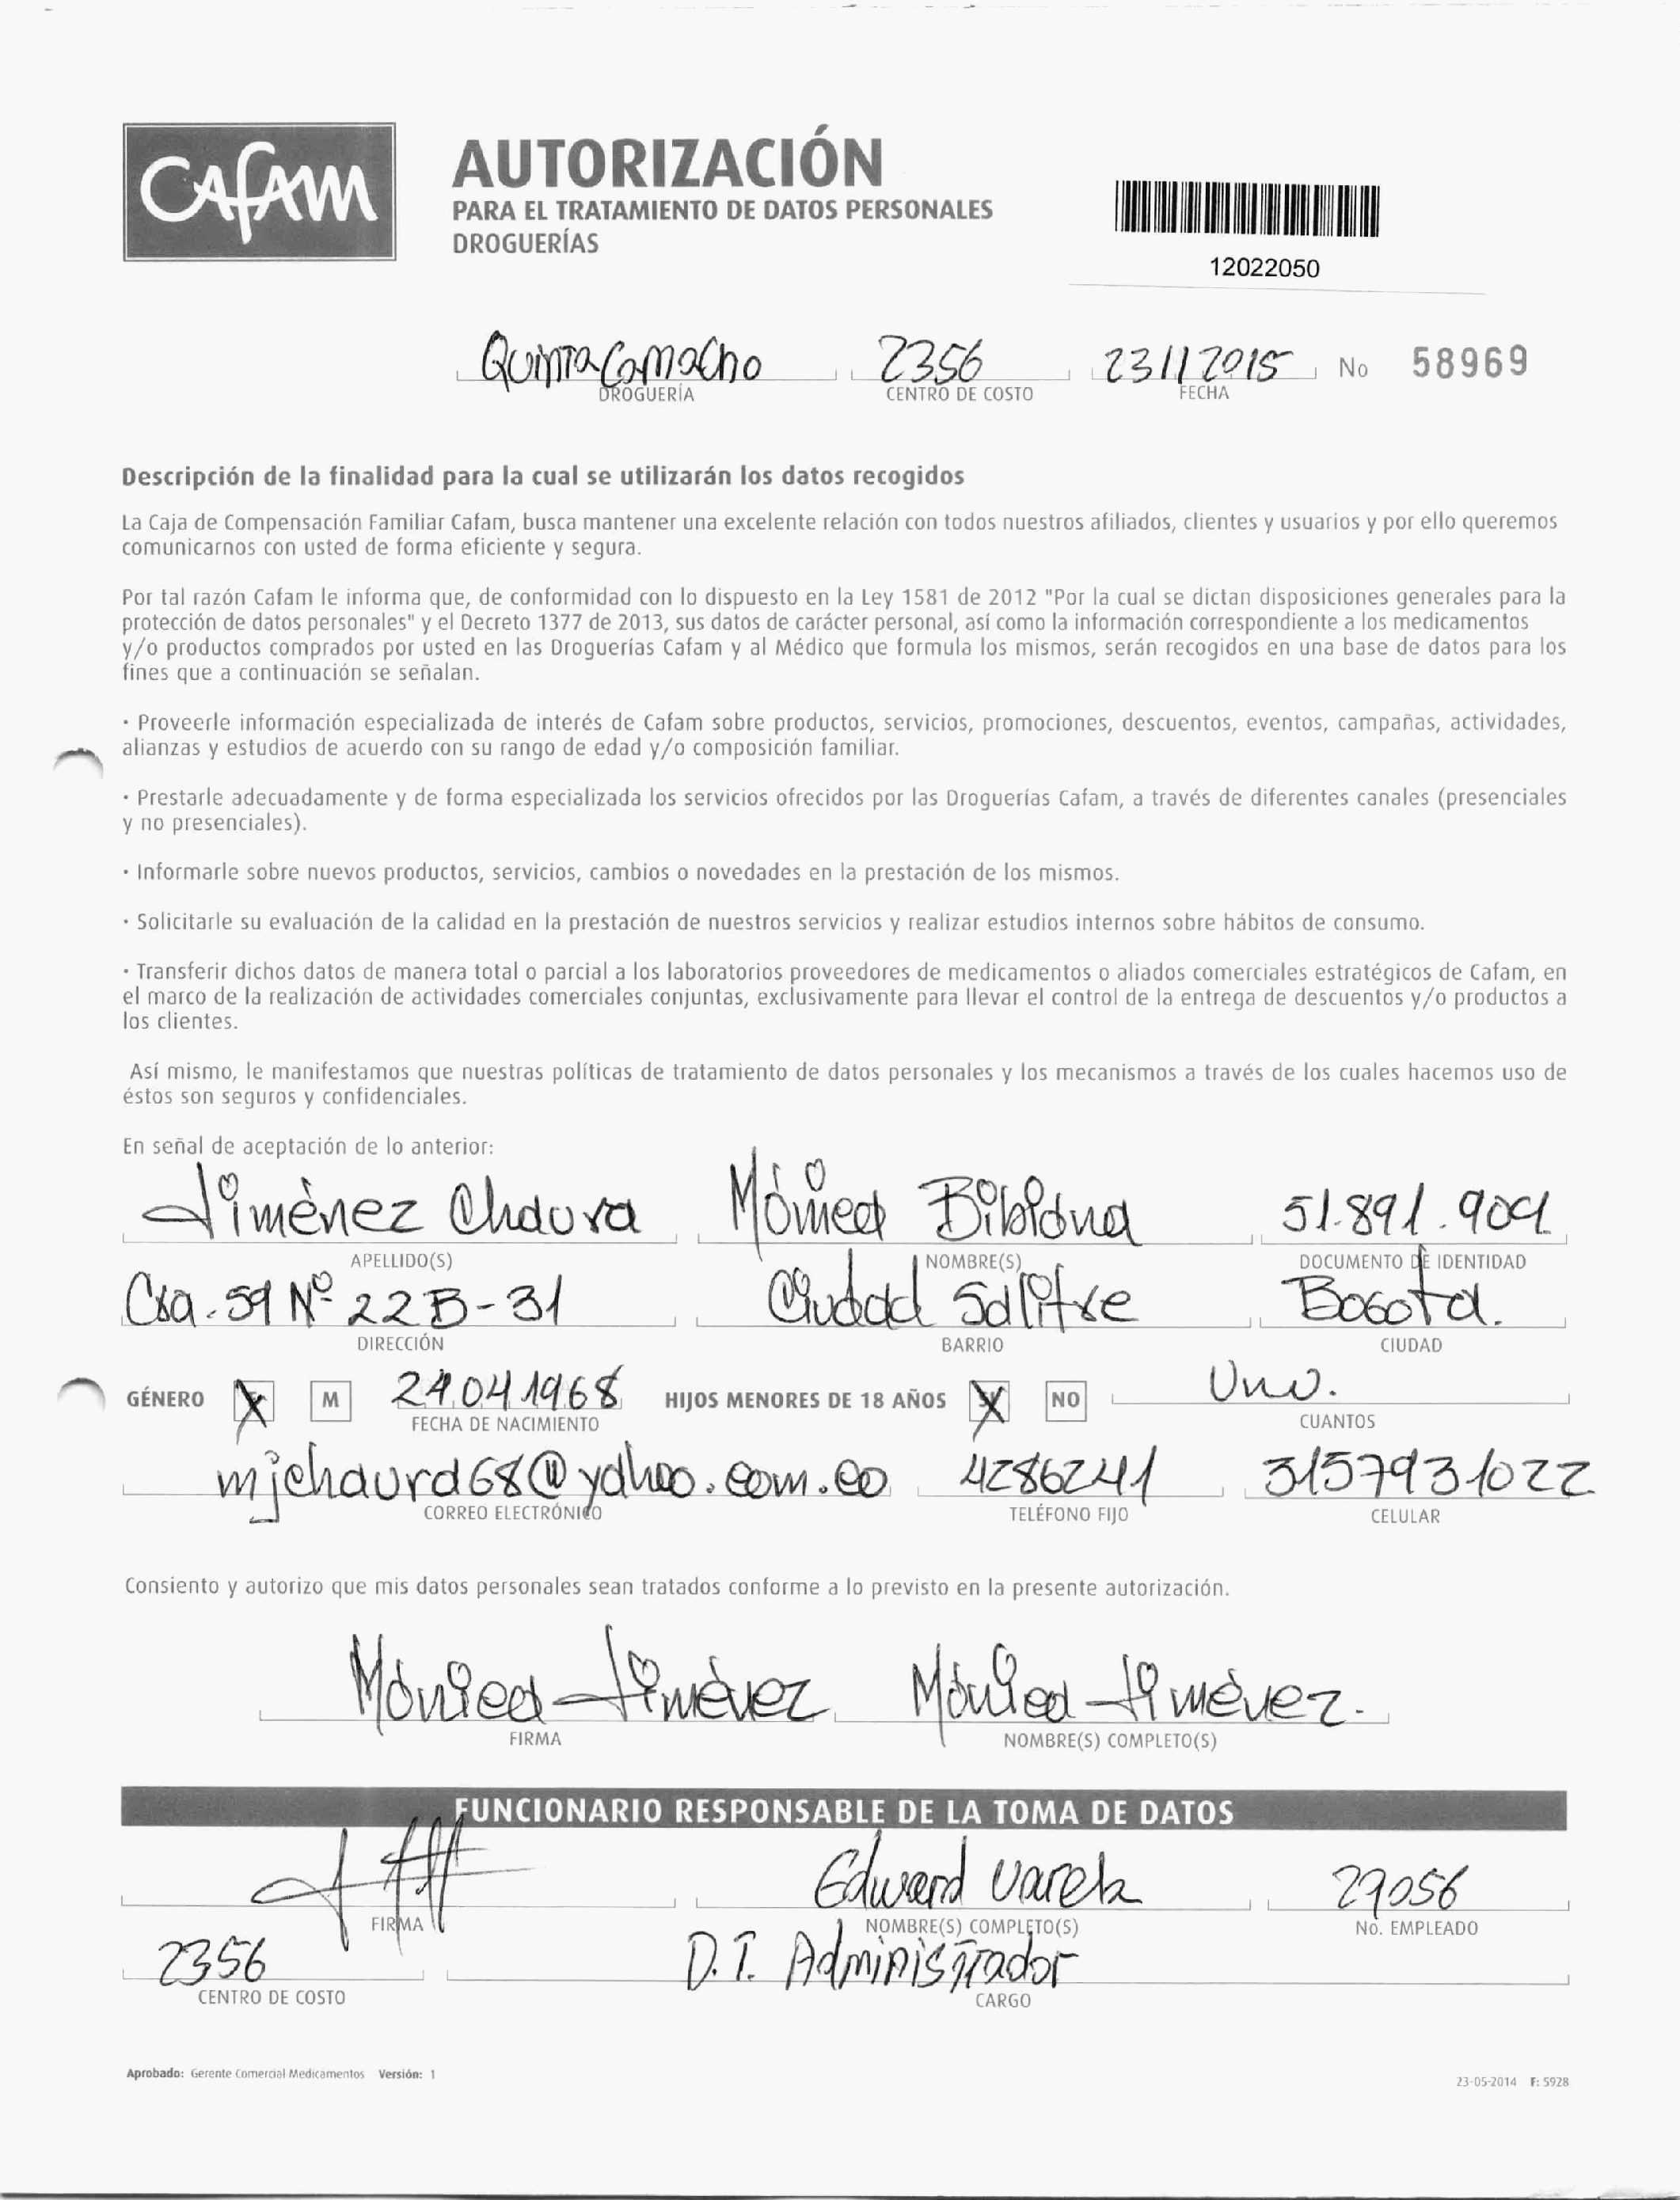 CAFAM
AUTORIZACIÓN
PARA EL TRATAMIENTO DE DATOS PERSONALES
DROGUERÍAS
12022050
Quinta Camacho 2356 23/11/2015 No 58969
DROGUERÍA CENTRO DE COSTO FECHA
Descripción de la finalidad para la cual se utilizarán los datos recogidos
La Caja de Compensación Familiar Cafam, busca mantener una excelente relación con todos nuestros afiliados, clientes y usuarios y por ello queremos
comunicarnos con usted de forma eficiente y segura.
Por tal razón Cafam le informa que, de conformidad con lo dispuesto en la Ley 1581 de 2012 "Por la cual se dictan disposiciones generales para la
protección de datos personales" y el Decreto 1377 de 2013, sus datos de carácter personal, así como la información correspondiente a los medicamentos
y/o productos comprados por usted en las Droguerías Cafam y al Médico que formula los mismos, serán recogidos en una base de datos para los
fines que a continuación se señalan.
· Proveerle información especializada de interés de Cafam sobre productos, servicios, promociones, descuentos, eventos, campañas, actividades,
alianzas y estudios de acuerdo con su rango de edad y/o composición familiar.
· Prestarle adecuadamente y de forma especializada los servicios ofrecidos por las Droguerías Cafam, a través de diferentes canales (presenciales
y no presenciales).
· Informarle sobre nuevos productos, servicios, cambios o novedades en la prestación de los mismos.
· Solicitarle su evaluación de la calidad en la prestación de nuestros servicios y realizar estudios internos sobre hábitos de consumo.
· Transferir dichos datos de manera total o parcial a los laboratorios proveedores de medicamentos o aliados comerciales estratégicos de Cafam, en
el marco de la realización de actividades comerciales conjuntas, exclusivamente para llevar el control de la entrega de descuentos y/o productos a
los clientes.
Así mismo, le manifestamos que nuestras políticas de tratamiento de datos personales y los mecanismos a través de los cuales hacemos uso de
éstos son seguros y confidenciales.
En señal de aceptación de lo anterior:
Jiménez Chaura Mónica Bibiana 51.891.909
APELLIDO(S) NOMBRE(S) DOCUMENTO DE IDENTIDAD
Cra. 59 Nº 22B-31 Ciudad Salitre Bogotá.
DIRECCIÓN BARRIO CIUDAD
GÉNERO X M 24.04.1968 HIJOS MENORES DE 18 AÑOS X NO Uno.
FECHA DE NACIMIENTO CUANTOS
mjchaura68@yahoo.com.co 4286241 3157931022
CORREO ELECTRÓNICO TELÉFONO FIJO CELULAR
Consiento y autorizo que mis datos personales sean tratados conforme a lo previsto en la presente autorización.
Mónica Jiménez Mónica Jiménez.
FIRMA NOMBRE(S) COMPLETO(S)
FUNCIONARIO RESPONSABLE DE LA TOMA DE DATOS
Edward Varela 29056
FIRMA NOMBRE(S) COMPLETO(S) No. EMPLEADO
2356 D.T. Administrador
CENTRO DE COSTO CARGO
Aprobado: Gerente Comercial Medicamentos Versión: 1
23-05-2014 F: 5928